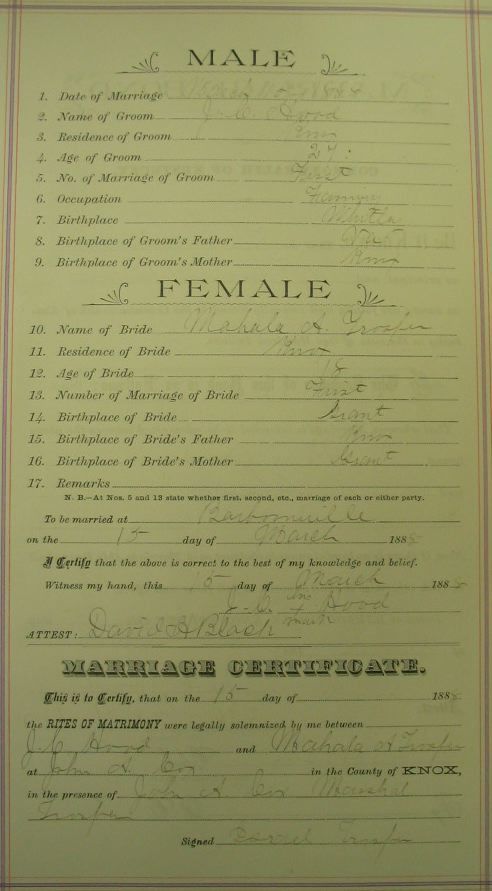 MALE
1. Date of Marriage March 15 1888
2. Name of Groom J. C. Hood
3. Residence of Groom Knox
4. Age of Groom 24
5. No. of Marriage of Groom First
6. Occupation Farmer
7. Birthplace
8. Birthplace of Groom's Father
9. Birthplace of Groom's Mother Knox
FEMALE
10. Name of Bride Mahala A.
11. Residence of Bride Knox
12. Age of Bride 18
13. Number of Marriage of Bride First
14. Birthplace of Bride Grant
15. Birthplace of Bride's Father Knox
16. Birthplace of Bride's Mother Grant
17. Remarks
N. B.—At Nos. 5 and 13 state whether first, second, etc., marriage of each or either party.
To be married at Barbourville
on the 15 day of March 188
I Certify that the above is correct to the best of my knowledge and belief.
Witness my hand, this 15 day of March 188
J. C. his x mark Hood
ATTEST: David A Black
MARRIAGE CERTIFICATE.
This is to Certify, that on the 15 day of 188
the RITES OF MATRIMONY were legally solemnized by me between
J. C. Hood and Mahala A
at John A. Cox in the County of KNOX,
in the presence of John A. Cox Marshal
Signed